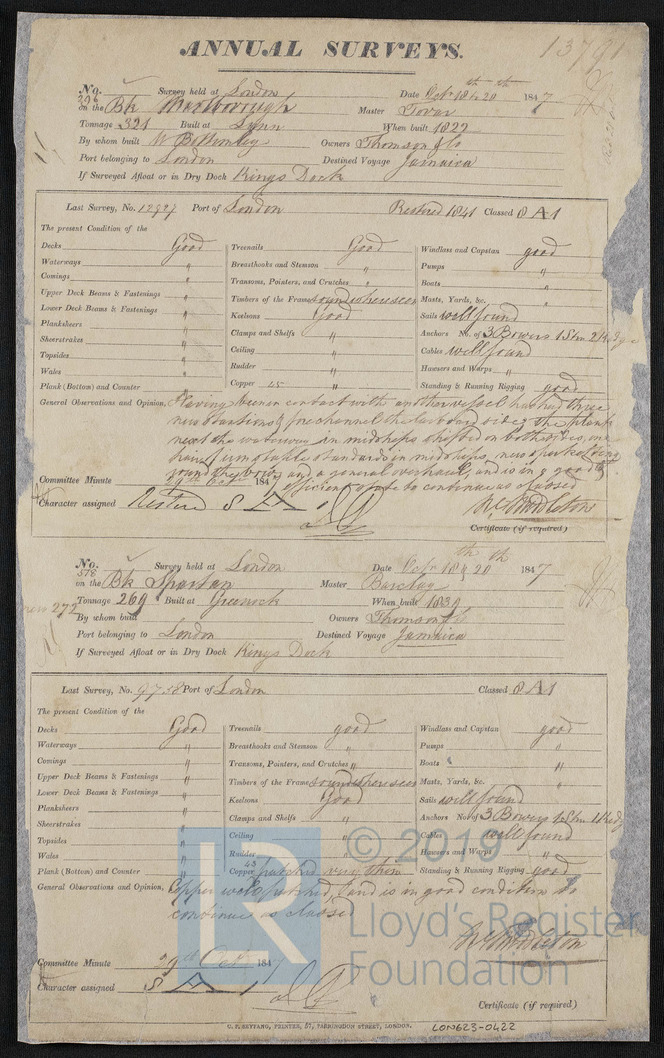 13791
ANNUAL SURVEYS.
No. 396 Survey held at London Date Octr 18 & 20th 1847
on the Bk Marlborough Master Tovar
Tonnage 321 Built at Lynn When built 1822
By whom built W Bottomley Owners Thomson & Co
Port belonging to London Destined Voyage Jamaica
If Surveyed Afloat or in Dry Dock Kings Dock
Last Survey, No. 12927 Port of London Restored 1841 Classed 8 A 1
The present Condition of the
Decks Good Treenails Good Windlass and Capstan good
Waterways " Breasthooks and Stemson " Pumps "
Comings " Transoms, Pointers, and Crutches " Boats "
Upper Deck Beams & Fastenings " Timbers of the Frame sound where seen Masts, Yards, &c. "
Lower Deck Beams & Fastenings " Keelsons Good Sails well found
Planksheers " Clamps and Shelfs " Anchors No. of 3 Bowers 1 Stm 2 Kedges
Sheerstrakes " Ceiling " Cables well found
Topsides "
Wales " Rudder " Hawsers and Warps "
Plank (Bottom) and Counter " Copper 45 " Standing & Running Rigging good
General Observations and Opinion, Having been in contact with another vessel has had three
new stantions & fore channel the larboard side, the plank
next the waterway in midships shifted on both sides, one
pair of standards in midships, new
round the bow, and a general overhaul, and is in a good &
efficient state to continue as classed
Committee Minute 29th Octr 184
Character assigned Restored 8 A 1
W Middleton
Certificate (if required)
No. 578 Survey held at London Date Octr 18 & 20th 1847
on the Bk Spartan Master Barclay
new 272
Tonnage 269 Built at Greenock When built 1839
By whom built Owners Thomson & Co
Port belonging to London Destined Voyage Jamaica
If Surveyed Afloat or in Dry Dock Kings Dock
Last Survey, No. 9758 Port of London Classed 8 A 1
The present Condition of the
Decks Good Treenails good Windlass and Capstan good
Waterways " Breasthooks and Stemson " Pumps "
Comings " Transoms, Pointers, and Crutches " Boats "
Upper Deck Beams & Fastenings " Timbers of the Frame sound where seen Masts, Yards, &c. "
Lower Deck Beams & Fastenings " Keelsons Good Sails well found
Planksheers " Clamps and Shelfs " Anchors No. of 3 Bowers 1 Stm 1 Kedge
Sheerstrakes " Ceiling " Cables well found
Topsides "
Wales " Rudder " Hawsers and Warps "
Plank (Bottom) and Counter " Copper 43 patched very thin Standing & Running Rigging good
General Observations and Opinion, Copper well patched, and is in good condition to
continue as classed
W Middleton
Committee Minute 29th Octr 184
Character assigned 8 A 1
Certificate (if required)
C. F. SEYFANG, PRINTER, 57, FARRINGDON STREET, LONDON.
LON623-0422
© 2019
Lloyd's Register
Foundation